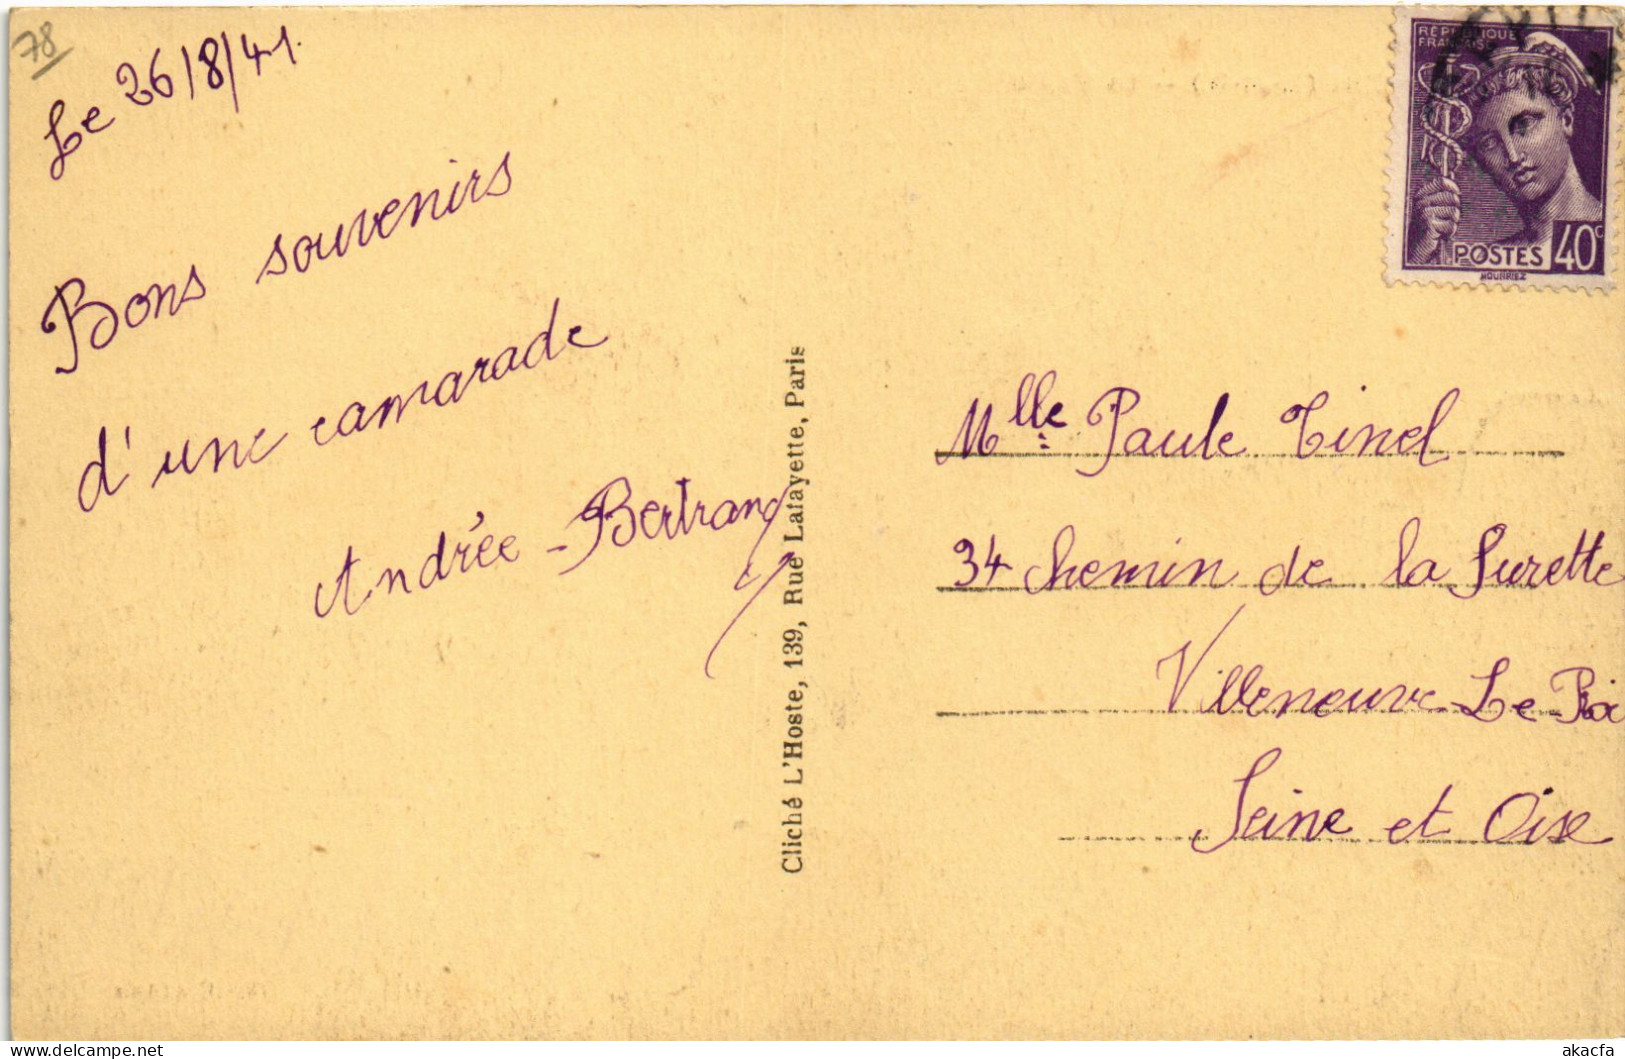 78
Le 26/8/41.
Bons souvenirs
d'une camarade
Andrée-Bertrand
Cliché L'Hoste, 139, Rue Lafayette, Paris
RÉPUBLIQUE
FRANÇAISE
POSTES 40c
HOURRIEZ
Mlle Paule Tinel
34 Chemin de la Surette
Villeneuve-Le-Roi
Seine et Oise
akacfa